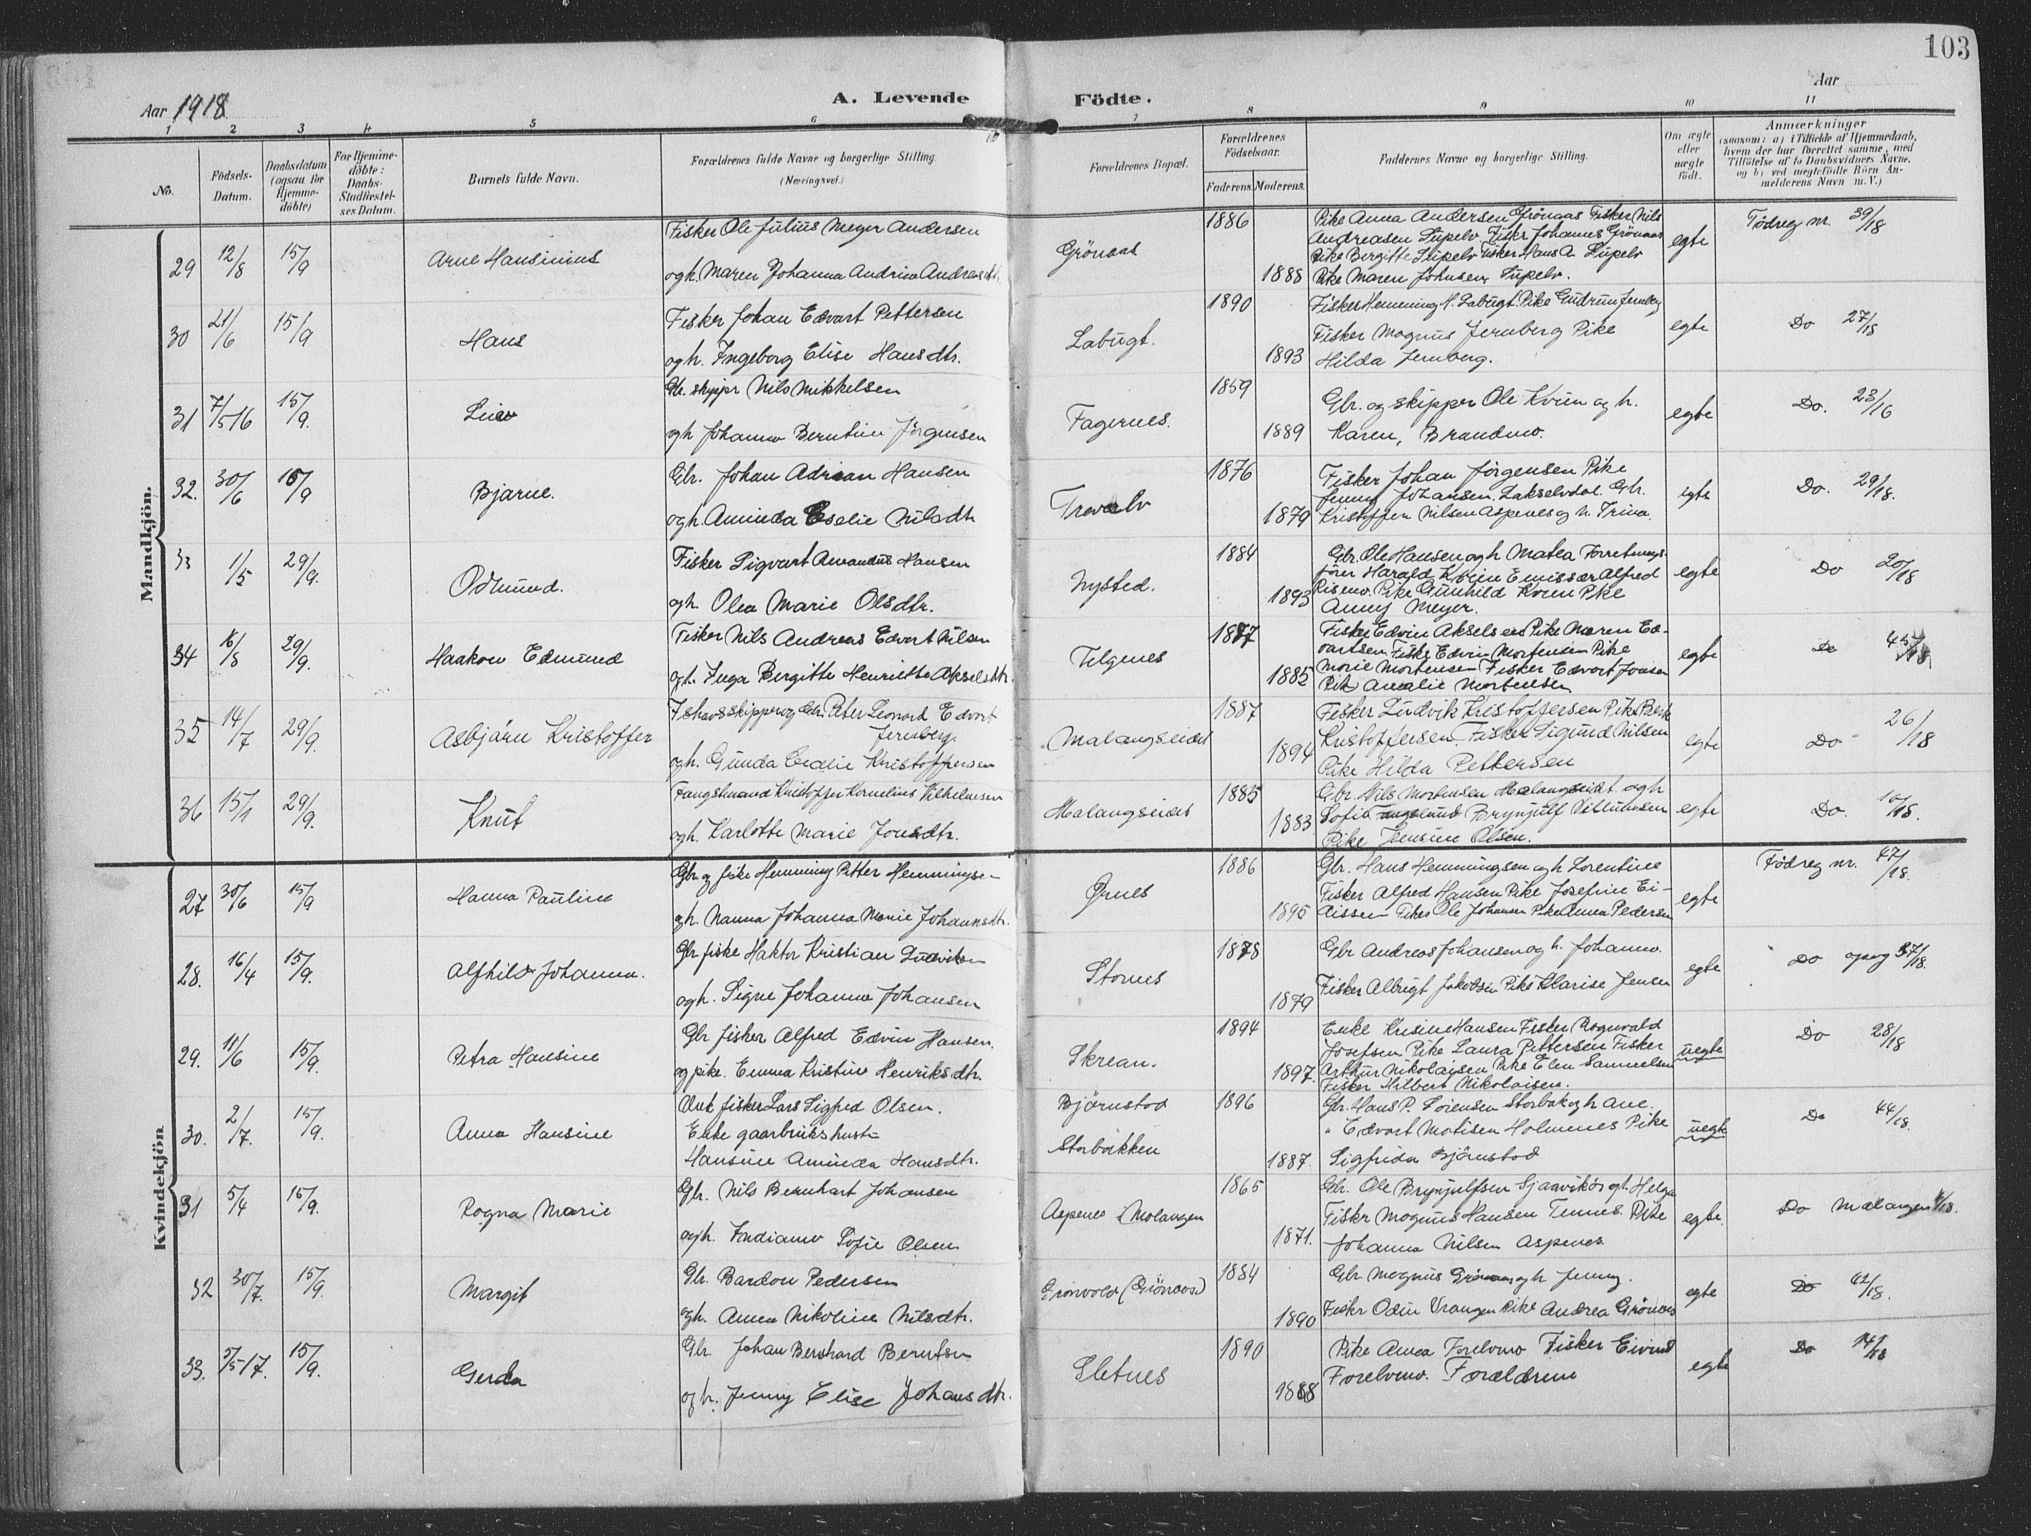 103
Aar 1918
A. Levende Födte.
Aar
1 2 3 4 5 6 7 8 9 10 11
No.
Födsels-Datum.
Daabsdatum (ogsaa for Hjemme-döbte)
For Hjemme-döbte: Daabs-Stadfæstel-ses Datum.
Barnets fulde Navn.
Forældrenes fulde Navne og borgerlige Stilling
(Næringsvei.)
Forældrenes Bopæl.
Forældrenes Födselsaar.
Faderens. Moderens.
Faddernes Navne og borgerlige Stilling.
Om ægte eller uægte födt.
Anmærkninger
(saasom: a) i Tilfælde af Hjemmedaab, hvem der har forrettet samme, med Tilföielse af to Daabsvidners Navne, og b) ved uegtefödte Börn An-melderens Navn m. V.)
Mandkjön.
29 12/8 15/9 Arne Hansinius
Fisker Ole Julius Meyer Andersen
og h. Maren Johanna Andrine Andreasdtr.
Grönaas 1886 1888
Pike Anna Andersen Grönaas Fisker Nils
Andreasen Supelv Fisker Johannes Grönaas
Pike Bergitte Supelv Fisker Hans A. Supelv
Pike Maren Johnsen, Supelv.
egte Födreg nr. 39/18
30 21/6 15/9 Hans
Fisker Johan Edvart Pettersen
og h. Ingeborg Elise Hansdtr.
Labugt. 1890 1893
Fisker Hemming H. Labugt. Pike Gudrun Jernberg
Fisker Magnus Jernberg Pike
Hilda Jernberg.
egte Do 27/18
31 7/5 16 15/9
Gbr. skipper Nils Mikkelsen
og h Johanna Berntine Jörgensen
Fagernes. 1859 1889
Gbr. og skipper Ole Kvien og h.
Karen, Brandmo.
egte Do. 23/16
32. 30/6 15/9 Bjarne.
Gbr. Johan Adrian Hansen
og h. Aminda Eselie Nilsdtr
Trevelv 1876 1879
Fisker Johan Jörgensen Pike
Jenny Johansen. Lakselvdal. Gbr.
Kristoffer Nilsen Aspenes og h. Trina.
egte Do. 29/18.
33 1/5 29/9. Odmund.
Fisker Sigvart Amandus Hansen
og h. Olea Marie Olsdtr.
Nysted. 1884 1893
Gbr. Ole Hansen og h Matea Forretnings-
förer Harald Kvien Emissær Alfred
Rismo. Pike Gunhild Kvien Pike
Anny Meyer.
egte Do 20/18
34 16/8 29/9. Haakon Edmund
Fisker Nils Andreas Edvart Nilsen
og h. Inga Bergitte Henriette Akselsdtr.
Telgenes 1877 1885
Fisker Edvin Akselsen Pike Maren Ed-
vartsen Fisker Edvin Mortensen Pike
Marie Mortensen Fisker Edvart Jonsen
Pike Amalie Mortensen
egte Do
35 14/7 29/9. Asbjörn Kristoffer
Ishavsskipper og Gbr. Peter Leonart Edvart
Jernberg.
og h. Gunda Cecelie Kristoffersen
Malangseidet 1887 1894
Fisker Ludvik Kristoffersen Pike
Kristoffersen. Fisker Sigurd Nilsen
Pike Hilda Pettersen
egte Do 26/18
36 15/1 29/9. Knut
Fangstmand Kristoffer Kornelius Vilhelmsen
og h. Karlotte Marie Jonsdtr.
Malangseidet 1885 1883
Gbr. Nils Mortensen Malangseidet og h
Sofie Fangstmand Brynjulf Vilhelmsen
Pike Jensine Olsen.
egte Do. 10/18.
Kvindekjön
27 30/6 15/9 Hanna Pauline
Gbr. og fisker Hemming Petter Hemmingsen
og h. Nanna Johanna Marie Johannsdtr.
Ørnes 1886 1895
Gbr. Hans Hemmingsen og h Lorentine
Fisker Alfred Hansen Pike Josefine Ei-
Fisker Ole Johansen Pike Anna Pedersen
egte Födreg nr. 47/18.
28. 16/4 15/9. Alfhild Johanna.
Gbr fisker Haktor Kristian Ludviksen
og h. Signe Johanna Johansen
Stornes 1878 1879
Gbr Andreas Johansen og h. Johanna.
Fisker Albrigt Jakobsen Pike Klarise Jensen
egte Do opsog 37/18.
29. 11/6 15/9. Petra Hansine
Gbr fisker Alfred Edvin Hansen.
og pike. Emma Kristine Henriksdtr.
Skrean. 1894 1897.
Enke Krisine Hansen Fisker Ragnvald
Josefsen Pike Laura Pettersen Fisker
Arthur Nikolaisen Pike Elen Samuelsen
Fisker Hilbert Nikolaisen.
uegte Do 28/18
30. 2/7. 15/9. Anna Hansine
Unk. fisker Lars Sigfred Olsen.
Enke gaarbrukshust.
Hansine Aminda Hansdtr.
Björnstad
Storbakken 1896 1887.
Gbr. Hans P. Sörensen Storbak og h Ane.
" Edvart Matisen Holmenes Pike
Sigfrida Björnstad
uegte Do 44/18.
31 5/4 15/9. Ragna Marie
Gbr. Nils Bernhart Johansen
og h. Indiana Sofie Olsen
Aspenes i Malangen 1865 1871.
Gbr. Ole Brynjulfsen Sjaavik og h. Helga
Fisker Magnus Hansen Tennes. Pike
Johanna Nilsen Aspenes
egte. Do Malangen
32 30/7. 15/9. Margit
Gbr. Bardon Pedersen
og h. Anna Nikoline Nilsdtr.
Grönvold (Grönaas) 1884 1890
Gbr Magnus Grönaas og h Jenny.
Fisker Odin Vrangen Pike Andrea Grönaas
egte Do 42/18.
33. 5/5 17. 15/9. Gerda
Gbr. Johan Bernhard Berntsen
og h. Jenny Elise Johansdtr.
Sletnes 1890 1888
Pike Anna Forelvmo Fisker Eivind
Forelvmo. Forældrene
egte Do 14/18